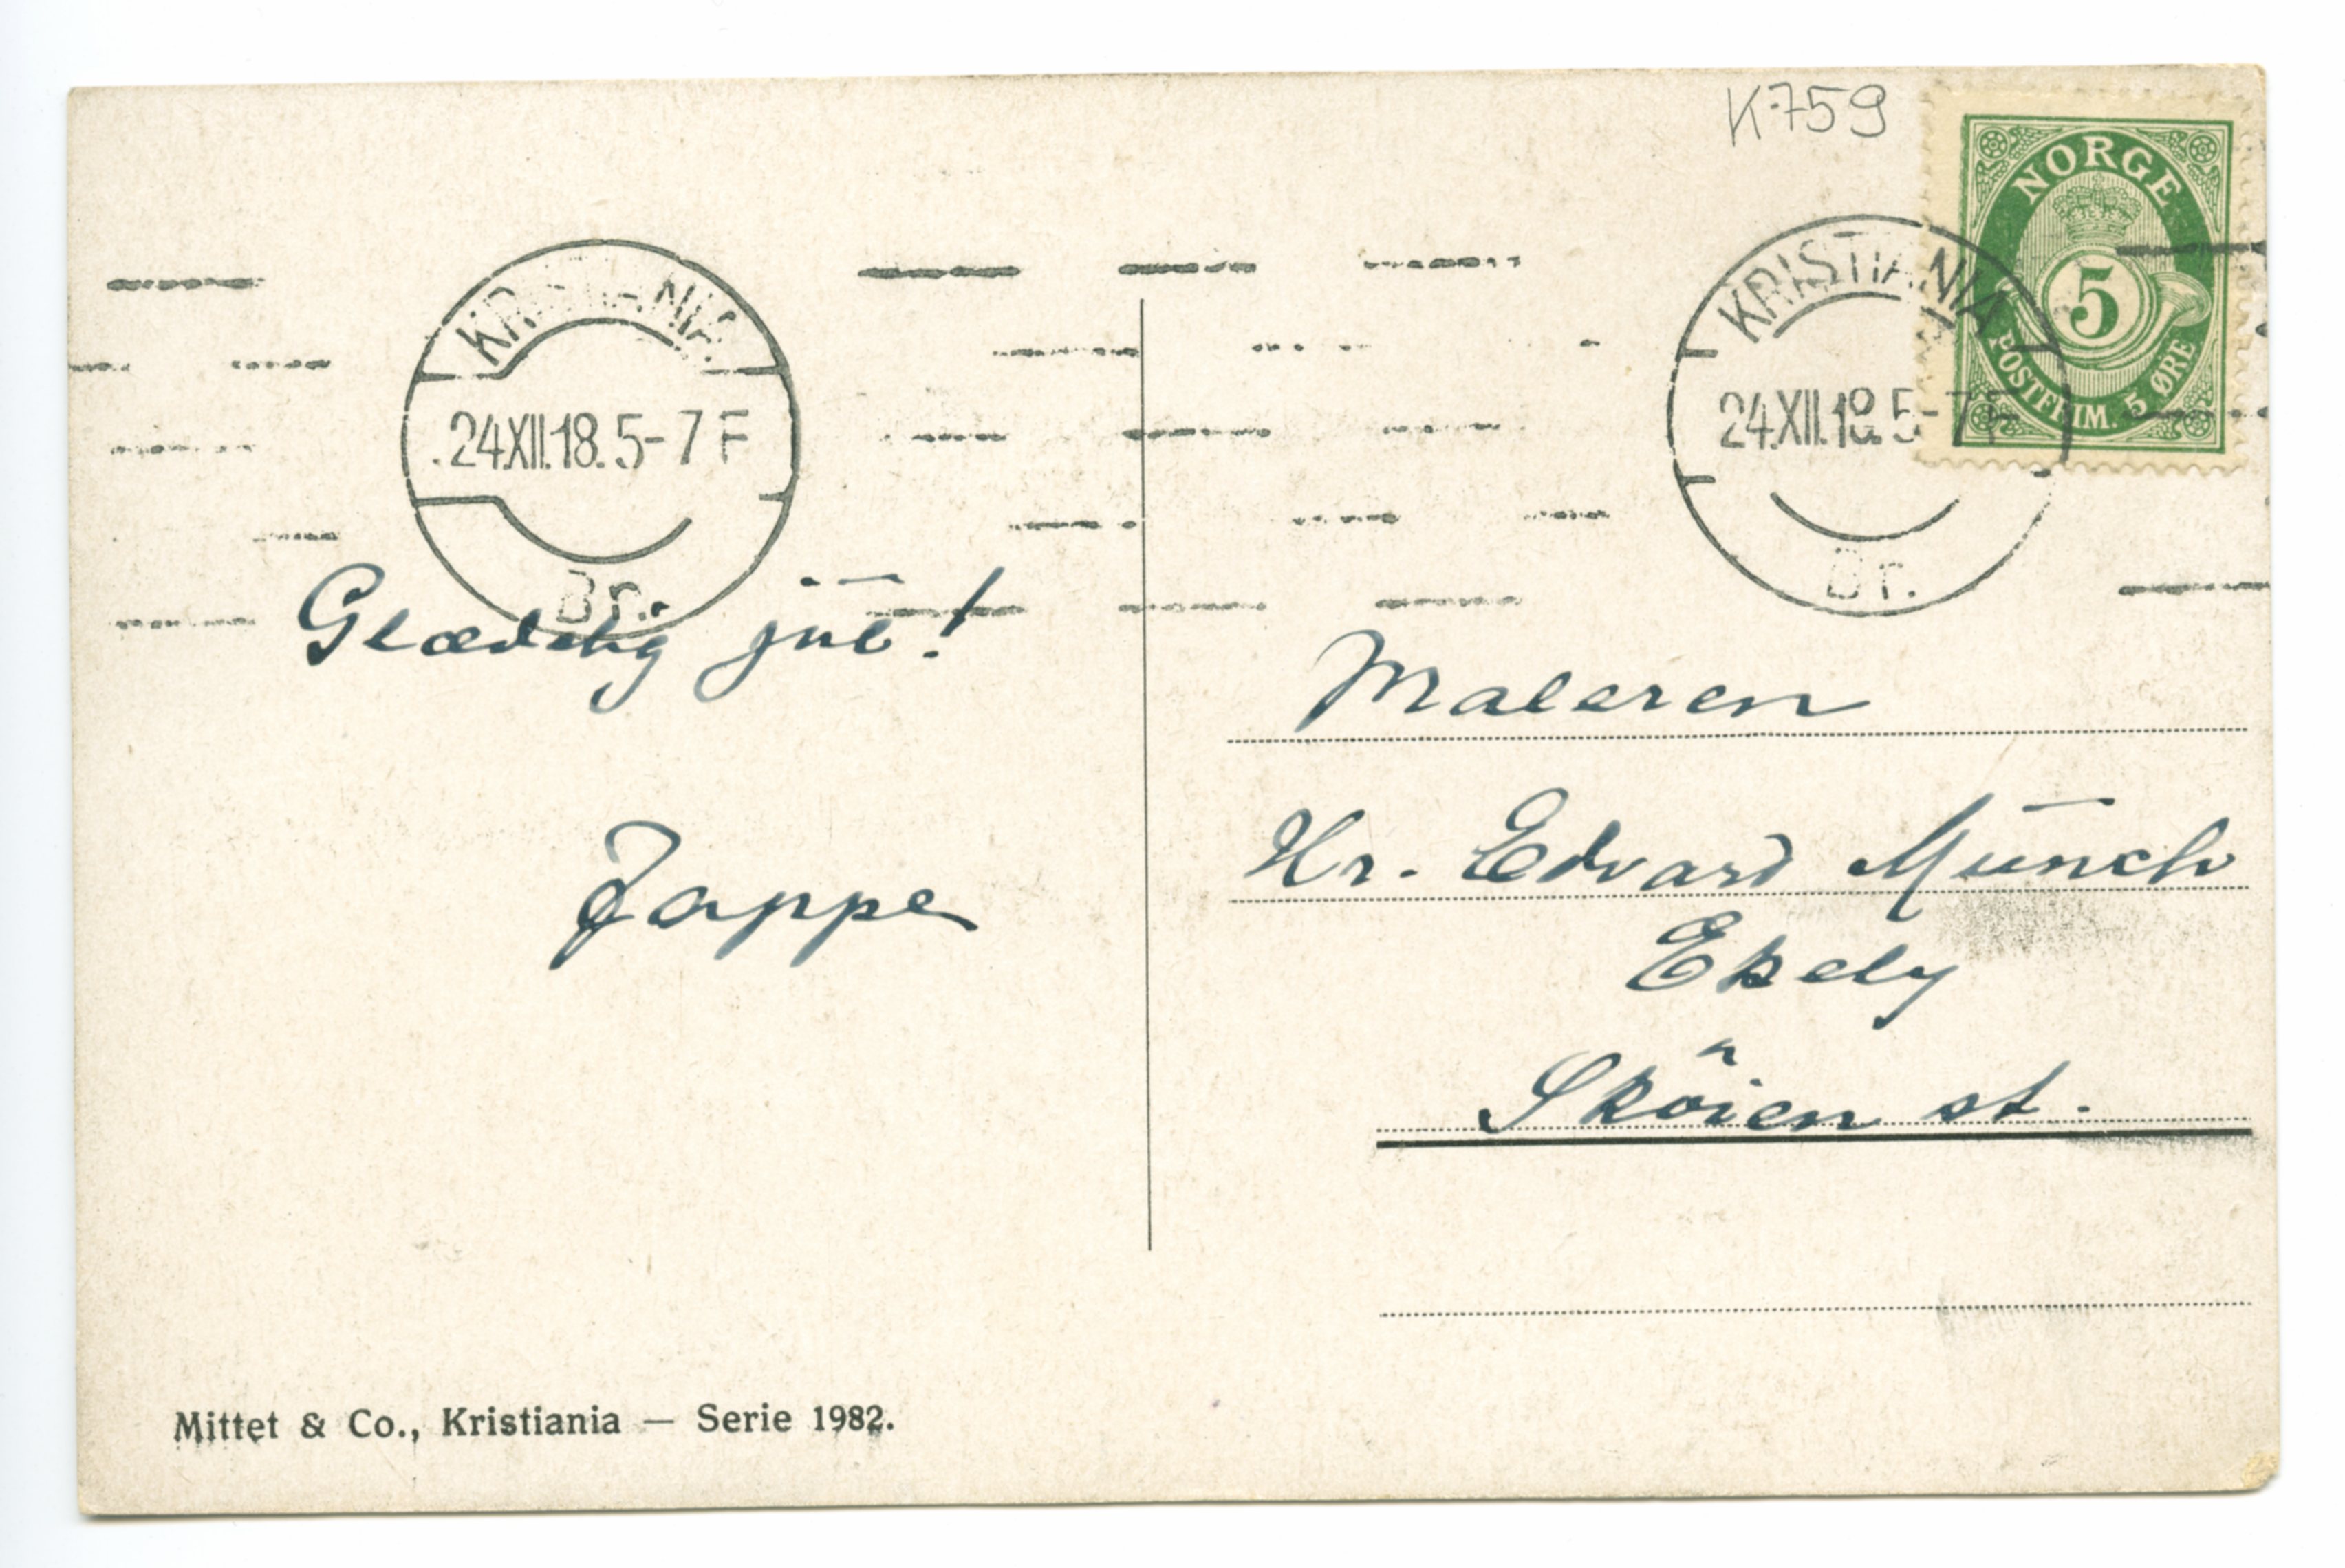 K759
NORGE
5
POSTFRIM. 5 ØRE
KRISTIANIA
24.XII.18.5-7 F
Br.
KRISTIANIA
24.XII.18.5-7 F
Br.
Glædelig jul!
Jappe
Maleren
Hr. Edvard Munch
Ekely
Sköien st.
Mittet & Co., Kristiania — Serie 1982.